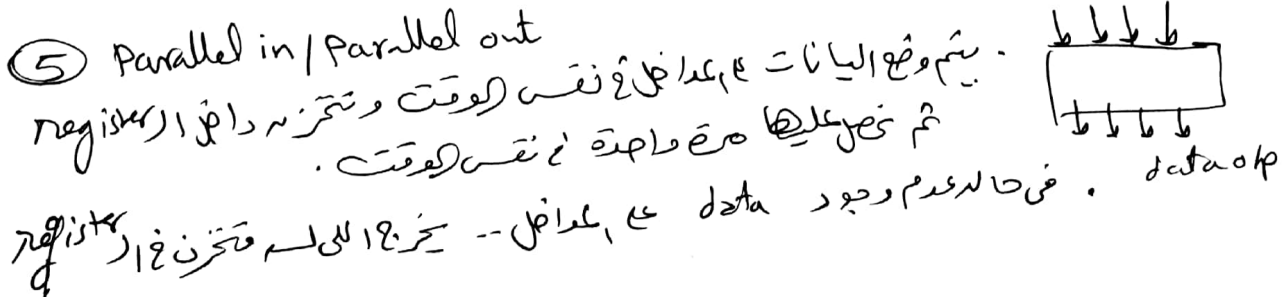 ⑤ Parallel in / Parallel out
. يتم وضع البيانات ع المداخل في نفس الوقت وتتخزن داخل ال register
ثم نحصل عليها مرة واحدة في نفس الوقت .
data o/p
. في حالة عدم وجود data ع المداخل .. يخرج اللي لسه متخزن في ال register